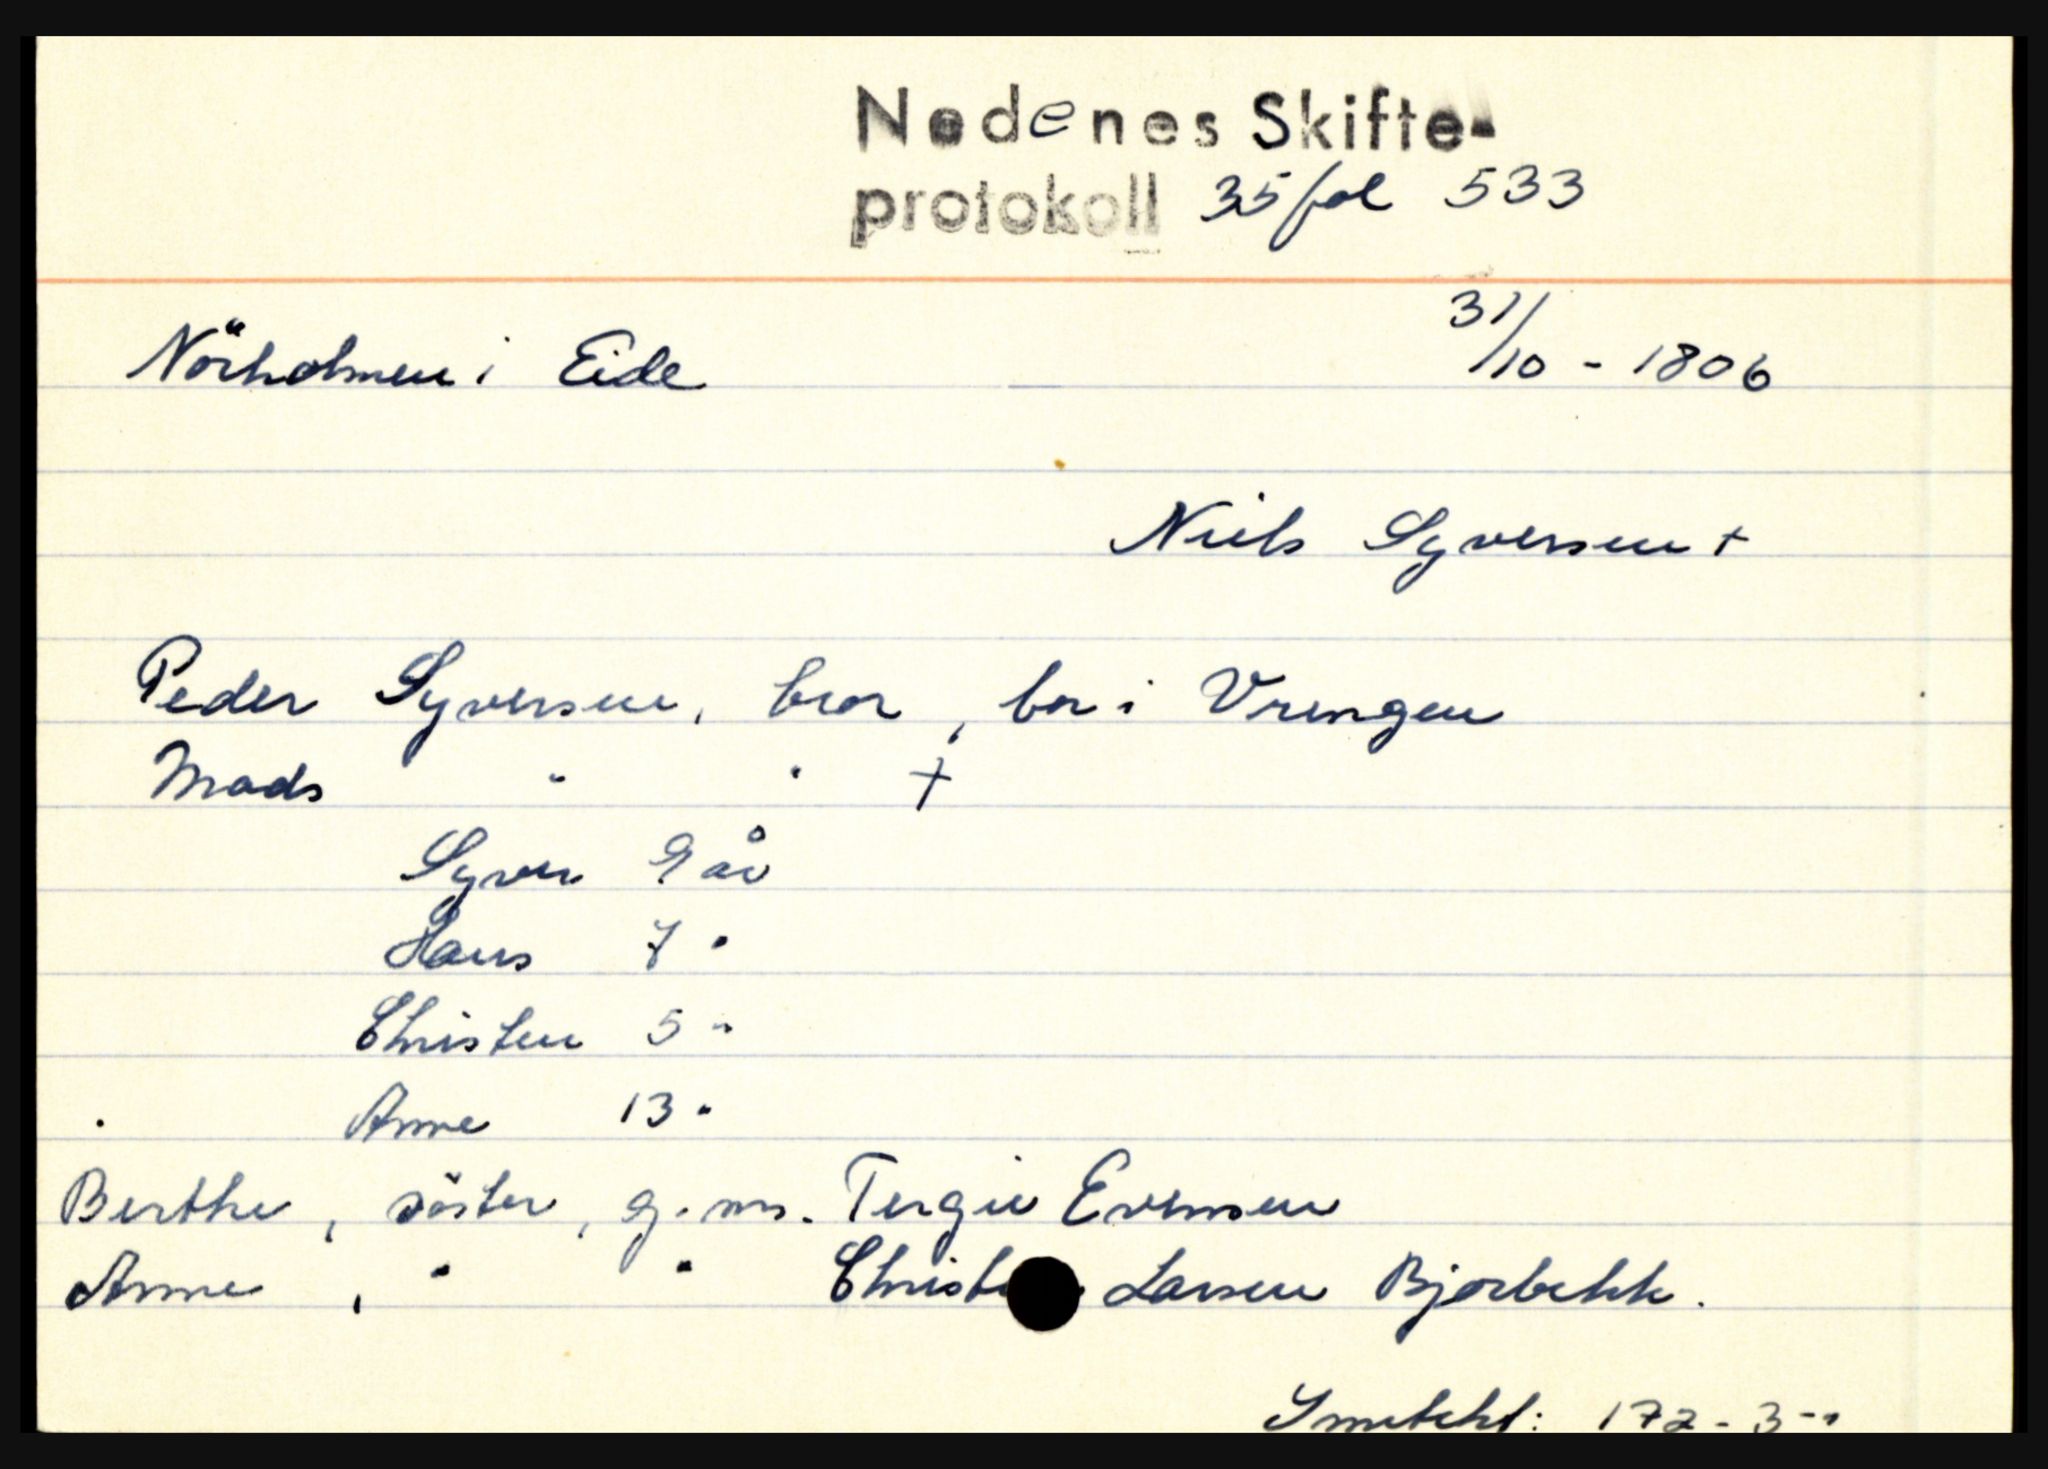 Nedenes Skifte-
protokoll 35 fol 533
Nörholmen i Eide 31/10 - 1806
Niels Syversen +
Peder Syversen, bror, bor i Vrengen
Mads " " +
Syver 9 år
Hans 7 "
Christen 5 "
Anne 13 "
Berthe, söster, g.m. Tergie Evensen
Anne, " " Christen Larsen Bjorbekk.
172 - 3 -"